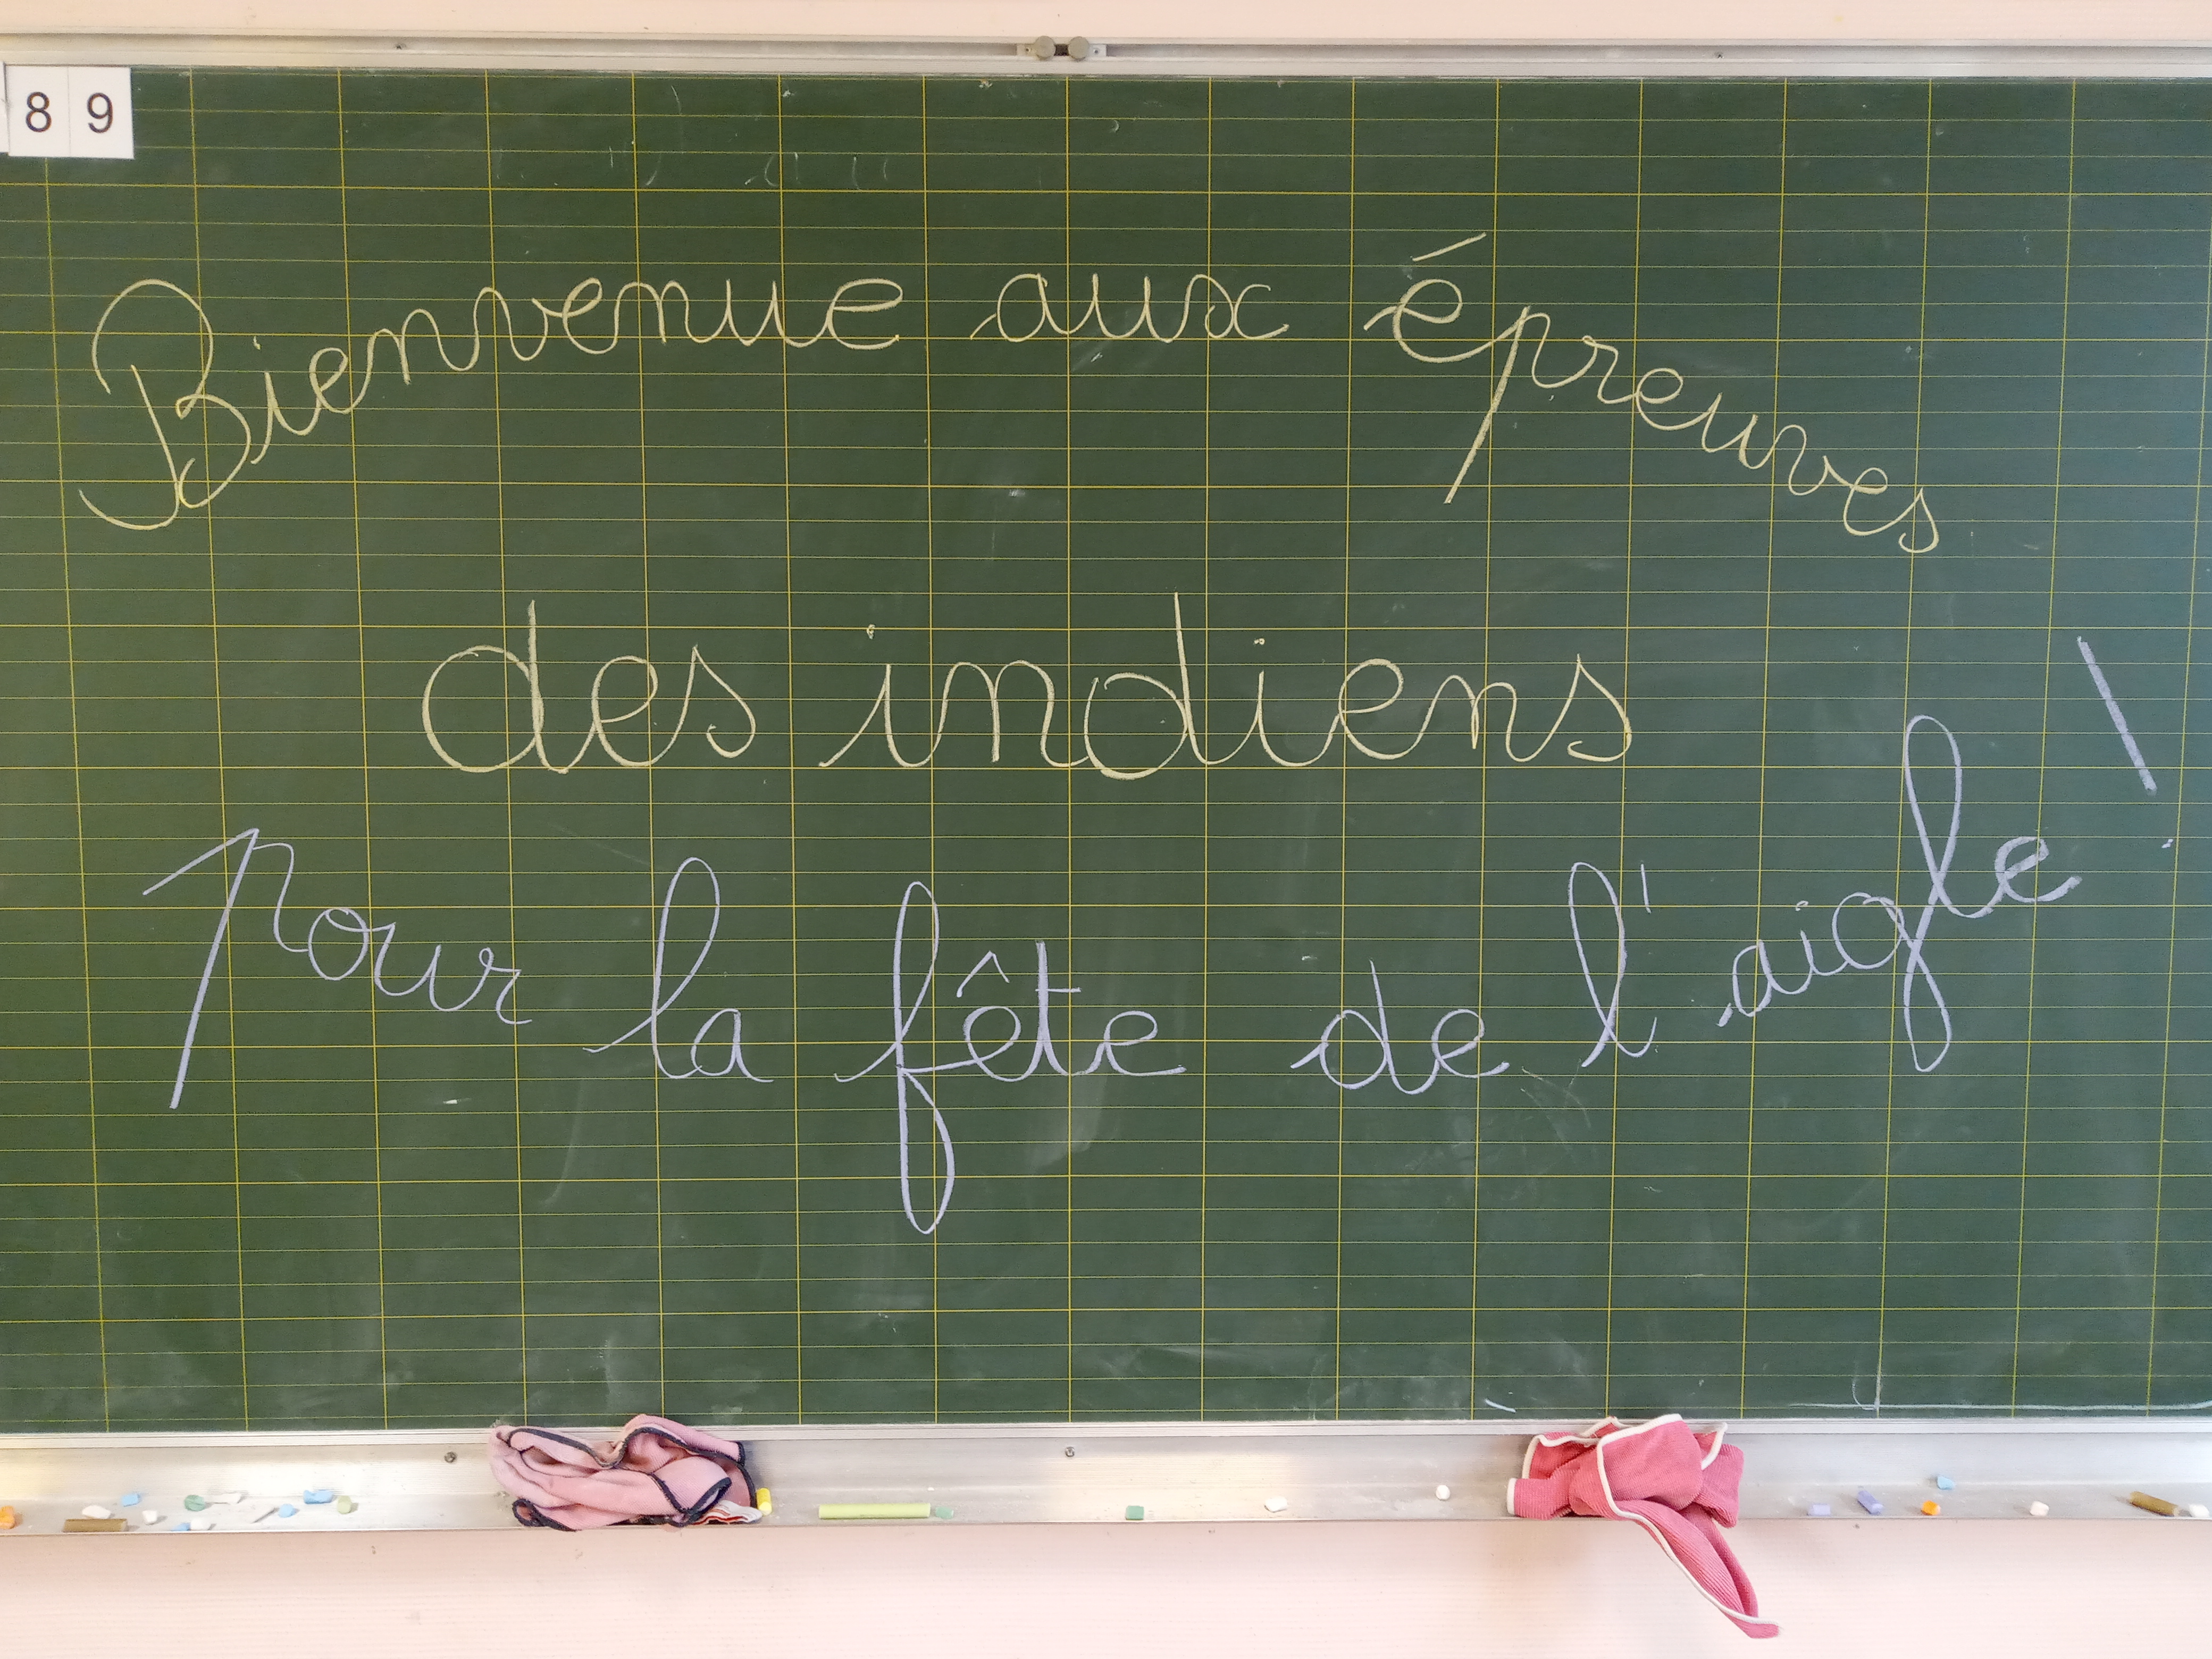 8 9
Bienvenue aux épreuves
des indiens
pour la fête de l'aigle !